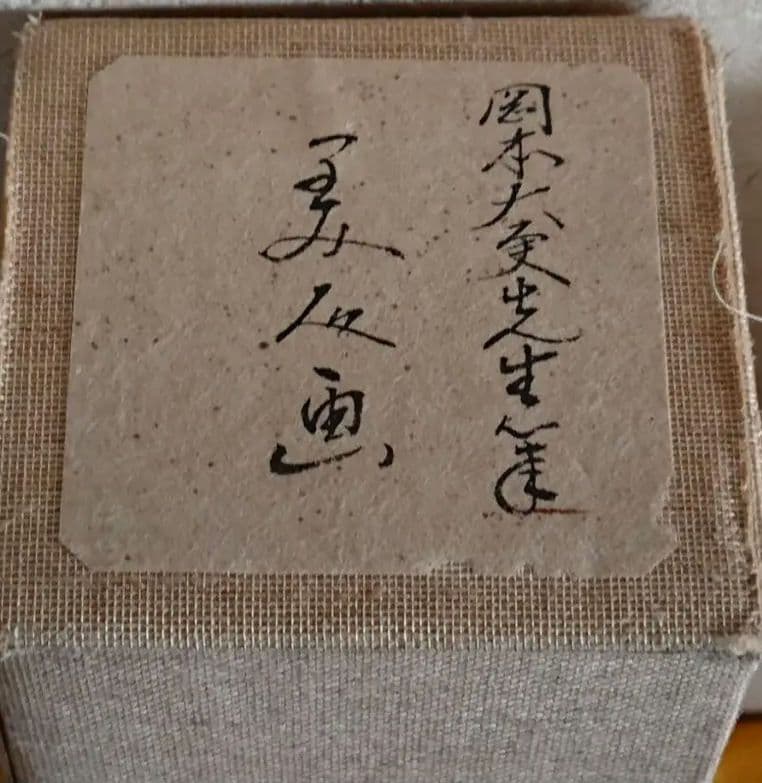 岡本大更先生筆
美人画